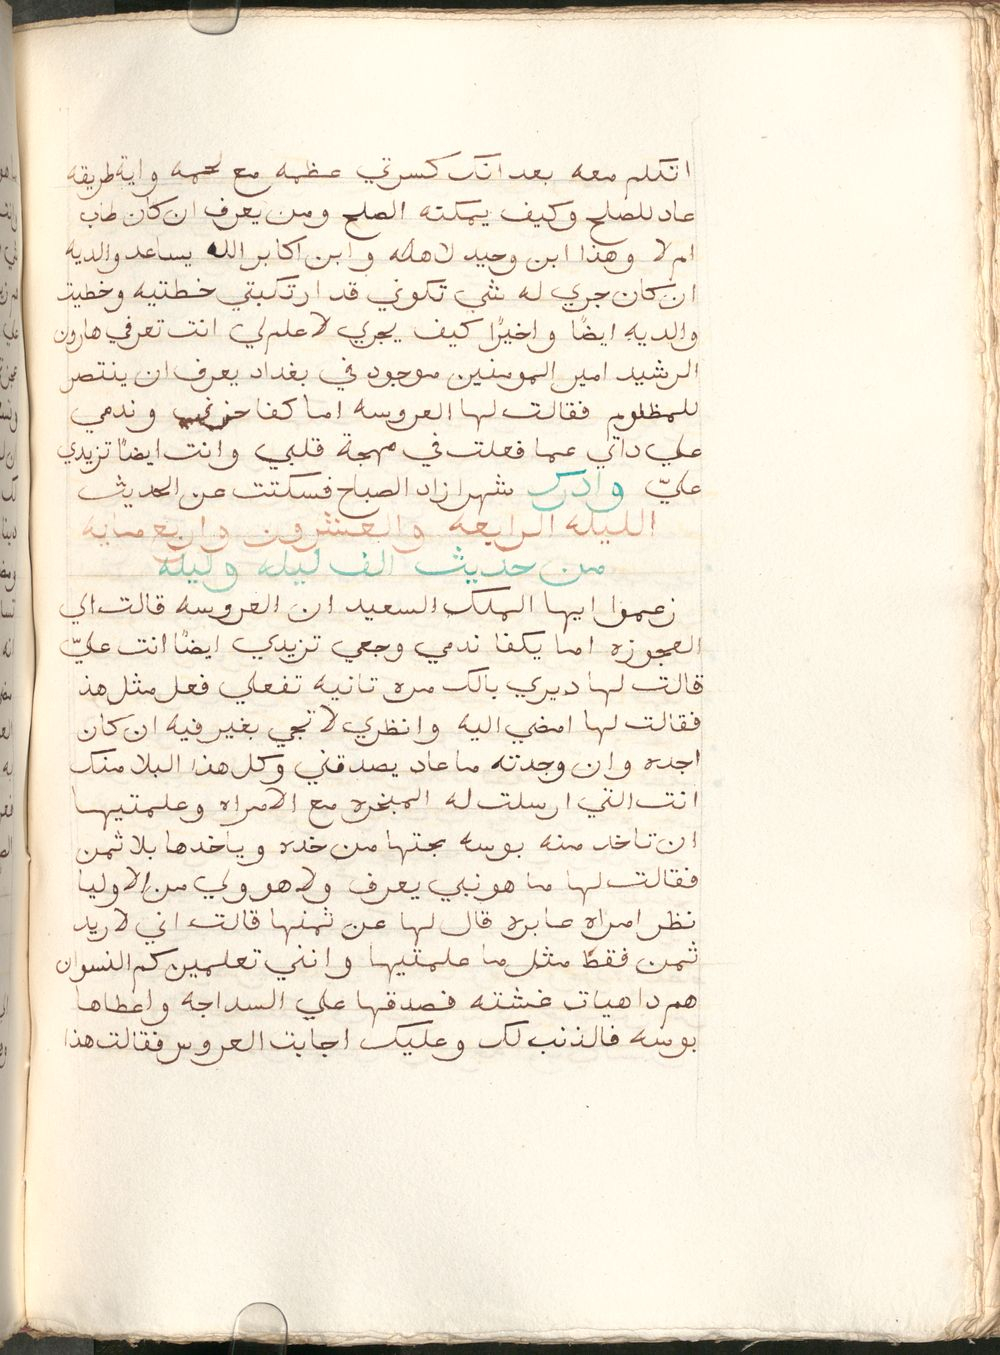 اتكلم معه بعد انك كسرتي عظمه مع لحمه واية طريقه
عاد للصلح وكيف يمكنه الصلح ومن يعرف ان كان طاب
ام لا وهذا ابن وحيد لاهله وابن اكابر الله يساعد والديه
ان كان جري له شي تكوني قد ارتكبتي خطتيه وخطيت
والديه ايضًا واخيرًا كيف يجري لا علم لي انت تعرفي هارون
الرشيد امير المومنين موجود في بغداد يعرف ان ينتصر
للمظلوم فقالت لها العروسه اما كفا حزني وندمي
علي داتي عما فعلت في مهجة قلبي وانت ايضًا تزيدي
عليّ وادرك شهرازاد الصباح فسكتت عن الحديث
الليله الرابعه والعشرون واربعمايه
من حديث الف ليله وليله
زعموا ايها الملك السعيد ان العروسه قالت اي
العجوزه اما يكفا ندمي وجعي تزيدي ايضًا انت عليّ
قالت لها ديري بالك مره تانيه تفعلي فعل مثل هذ
فقالت لها امضي اليه وانظري لا تجي بغير فيه ان كان
اجده وان وجدته ما عاد يصدقني وكل هذا البلا منك
انت التي ارسلت له المبخره مع الامراه وعلمتيها
ان تاخد منه بوسه بجتها من خده وياخدها بلا ثمن
فقالت لها ما هو نبي يعرف ولا هو ولي من الاوليا
نظر امراه عابره قال لها عن ثمنها قالت اني لا ريد
ثمن فقط مثل ما علمتيها وانني تعلمين كم النسوان
هم داهيات غشته فصدقها علي السداجه واعطاها
بوسه فالذنب لك وعليك اجابت العروس فقالت هذا